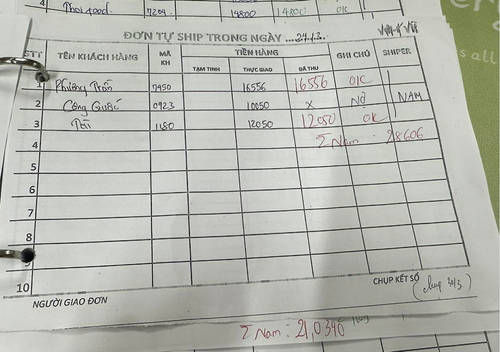 4 Thai food 7204 14800 14800 OK
ĐƠN TỰ SHIP TRONG NGÀY ...24/3.
STT TÊN KHÁCH HÀNG MÃ KH TIỀN HÀNG GHI CHÚ SHIPER
TẠM TÍNH THỰC GIAO ĐÃ THU
1 Phương Trần 7450 16556 16556 OK
2 Công Quốc 0923 10050 x NỢ NAM
3 Tài 1180 12050 12050 OK
4 Σ Nam : 28606
5
6
7
8
9
10
CHỤP KẾT SỔ
NGƯỜI GIAO ĐƠN
Σ Nam : 21,0390